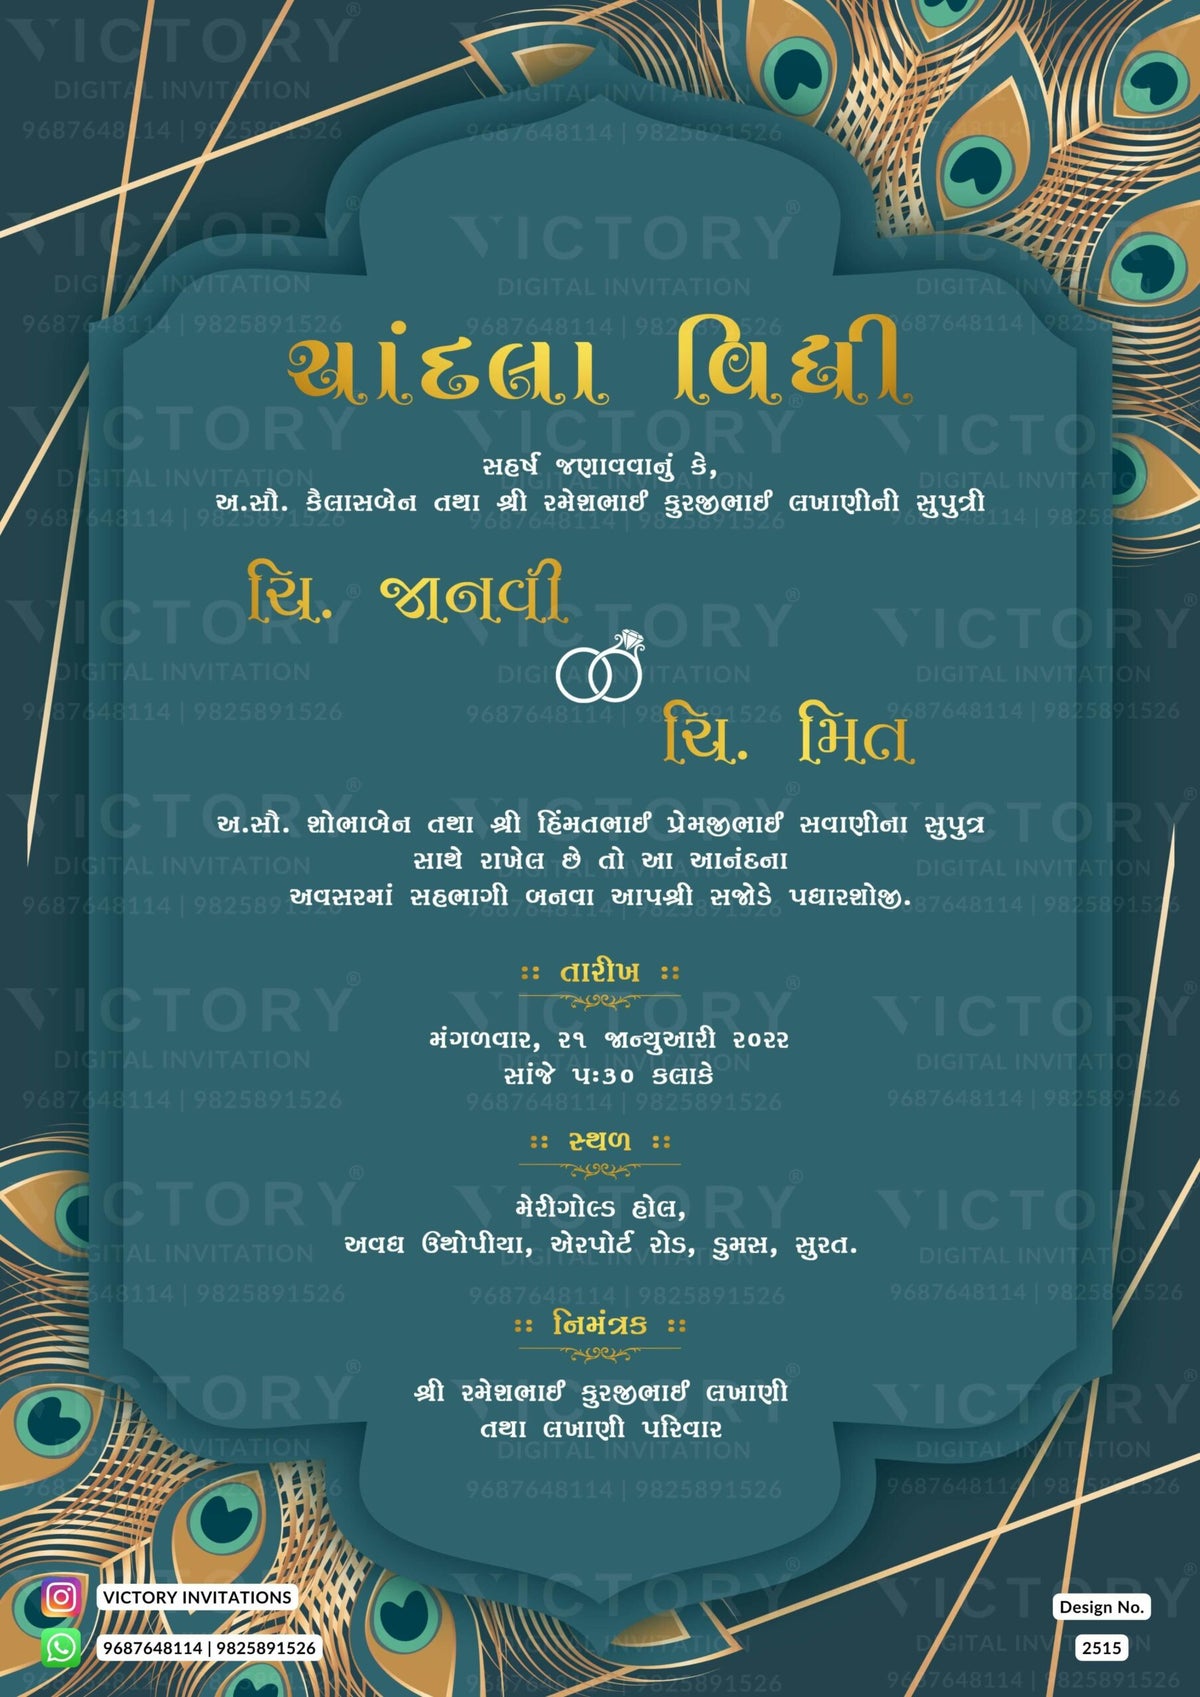 ચાંદલા વિધી
સહર્ષ જણાવવાનું કે,
અ.સૌ. કૈલાસબેન તથા શ્રી રમેશભાઈ કુરજીભાઈ લખાણીની સુપુત્રી
ચિ. જાનવી
ચિ. મિત
અ.સૌ. શોભાબેન તથા શ્રી હિંમતભાઈ પ્રેમજીભાઈ સવાણીના સુપુત્ર
સાથે રાખેલ છે તો આ આનંદના
અવસરમાં સહભાગી બનવા આપશ્રી સજોડે પધારશોજી.
:: તારીખ ::
મંગળવાર, ૨૧ જાન્યુઆરી ૨૦૨૨
સાંજે ૫:૩૦ કલાકે
:: સ્થળ ::
મેરીગોલ્ડ હોલ,
અવધ ઉથોપીયા, એરપોર્ટ રોડ, ડુમસ, સુરત.
:: નિમંત્રક ::
શ્રી રમેશભાઈ કુરજીભાઈ લખાણી
તથા લખાણી પરિવાર
VICTORY INVITATIONS
9687648114 | 9825891526
Design No.
2515
VICTORY®
DIGITAL INVITATION
9687648114 | 9825891526